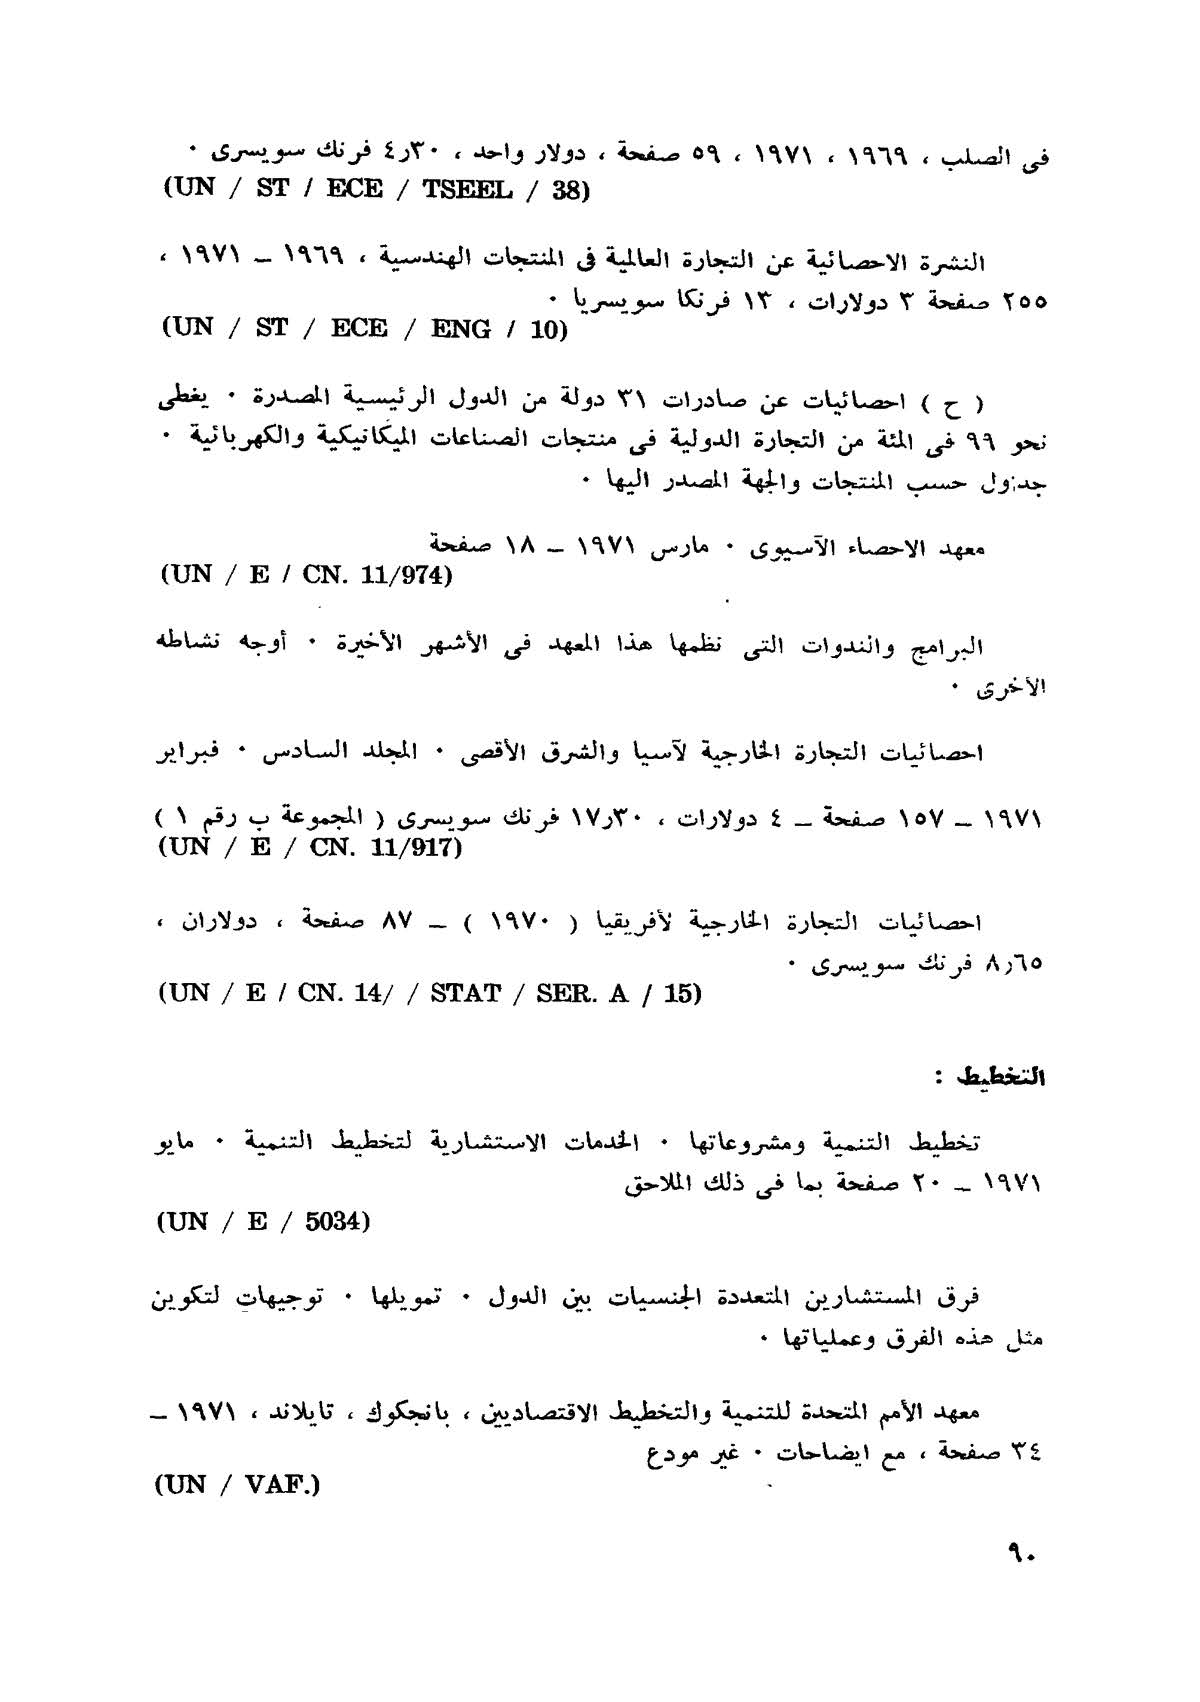 فى الصلب ، ١٩٦٩ ، ١٩٧١ ، ٥٩ صفحة ، دولار واحد ، ٤٫٣٠ فرنك سويسرى ٠
(UN / ST / ECE / TSEEL / 38)
النشرة الاحصائية عن التجارة العالمية فى المنتجات الهندسية ، ١٩٦٩ ــ ١٩٧١ ،
٢٥٥ صفحة ٣ دولارات ، ١٣ فرنكا سويسريا ٠
(UN / ST / ECE / ENG / 10)
( ح ) احصائيات عن صادرات ٣١ دولة من الدول الرئيسية المصدرة ٠ يغطى
نحو ٩٩ فى المئة من التجارة الدولية فى منتجات الصناعات الميكانيكية والكهربائية ٠
جدول حسب المنتجات والجهة المصدر اليها ٠
معهد الاحصاء الآسيوى ٠ مارس ١٩٧١ ــ ١٨ صفحة
(UN / E / CN. 11/974)
البرامج والندوات التى نظمها هذا المعهد فى الأشهر الأخيرة ٠ أوجه نشاطه
الأخرى ٠
احصائيات التجارة الخارجية لآسيا والشرق الأقصى ٠ المجلد السادس ٠ فبراير
١٩٧١ ــ ١٥٧ صفحة ــ ٤ دولارات ، ١٧٫٣٠ فرنك سويسرى ( المجموعة ب رقم ١ )
(UN / E / CN. 11/917)
احصائيات التجارة الخارجية لأفريقيا ( ١٩٧٠ ) ــ ٨٧ صفحة ، دولاران ،
٨٫٦٥ فرنك سويسرى ٠
(UN / E / CN. 14/ / STAT / SER. A / 15)
التخطيط :
تخطيط التنمية ومشروعاتها ٠ الخدمات الاستشارية لتخطيط التنمية ٠ مايو
١٩٧١ ــ ٢٠ صفحة بما فى ذلك الملاحق
(UN / E / 5034)
فرق المستشارين المتعددة الجنسيات بين الدول ٠ تمويلها ٠ توجيهات لتكوين
مثل هذه الفرق وعملياتها ٠
معهد الأمم المتحدة للتنمية والتخطيط الاقتصاديين ، بانجكوك ، تايلاند ، ١٩٧١ ــ
٣٤ صفحة ، مع ايضاحات ٠ غير مودع
(UN / VAF.)
٩٠